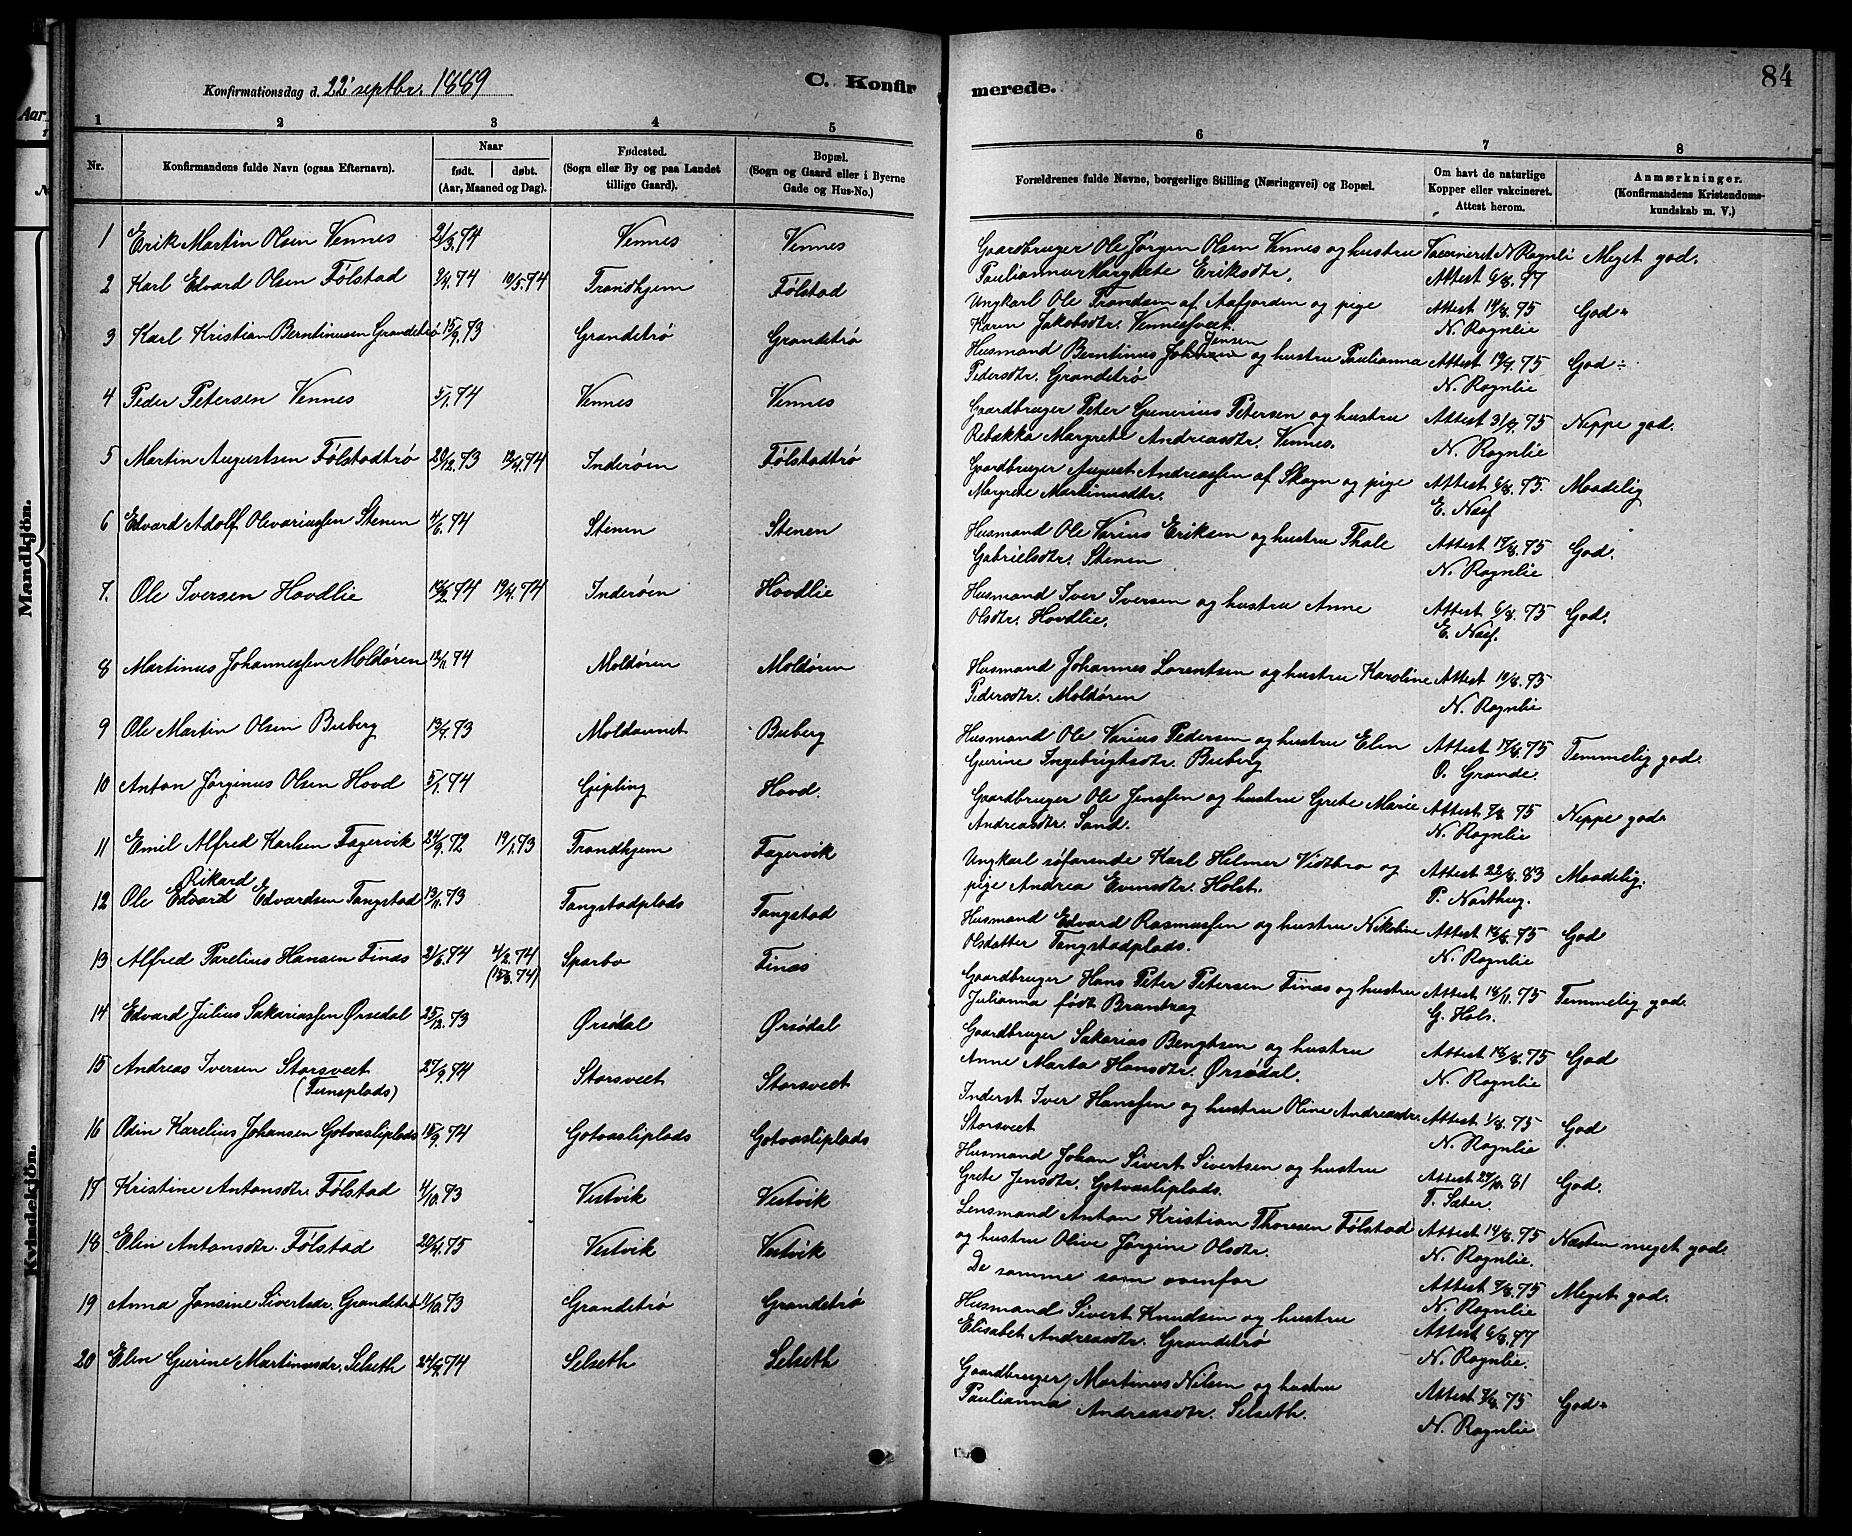 84
Konfirmationsdag d. 22' septbr. 1889
C. Konfirmerede.
1 2 3 4 5 6 7 8
Nr.
Konfirmandens fulde Navn (ogsaa Efternavn).
Naar
født. døbt.
(Aar, Maaned og Dag).
Fødested.
(Sogn eller By og paa Landet
tillige Gaard).
Bopæl.
(Sogn og Gaard eller i Byerne
Gade og Hus-No.)
Forældrenes fulde Navne, borgerlige Stilling (Næringsvei) og Bopæl.
Om havt de naturlige
Kopper eller vakcineret.
Attest herom.
Anmærkninger.
(Konfirmandens Kristendoms-
kundskab m. V.)
Aar
Mandkjön.
Kvindekjön.
1 Erik Martin Olsen Vennes 2/3.74 Vennes Vennes
Gaardbruger Ole Jørgen Olsen Vennes og hustru Vaccineret N Rognli Meget god.
Paulianna Margrete Eriksdtr. Attest 6/8.77
2 Karl Edvard Olsen Følstad 2/4.74 10/5.74 Trondhjem Følstad
Ungkarl Ole Trondsen af Aafjorden og pige Attest 14/8.75 God
Karen Jakobsdtr. Vennesveet. N. Rognlie
3 Karl Kristian Berntinusen Grandetrø 15/9.73 Grandetrø Grandetrø
Husmand Berntinus Jensen og hustru Paulianna Attest 19/9.75 God
Pedersdtr. Grandetrø N. Rognlie
4 Peder Petersen Vennes 5/1.74 Vennes Vennes
Gaardbruger Peter Gunerius Petersen og hustru Attest 31/8.75 Neppe god.
Rebakka Margrete Andreasdtr. Vennes. N. Rognlie
5 Martin Augustsen Følstadtrø 20/12.73 12/4.74 Inderøen Følstadtrø
Gaardbruger August Andreassen af Skogn og pige Attest 6/8.75. Maadelig
Margrete Martinusdtr. E. Næss
6 Edvard Adolf Olevariussen Stenen 4/6.74 Stenen Stenen
Husmand Ole Varius Eriksen og hustru Thale Attest 17/8.75 God.
Gabrielsdtr. Stenen N. Rognlie
7. Ole Iversen Hovdlie 74 19/4.74 Inderøen Hovdlie
Husmand Iver Iversen og hustru Anne Attest 6/8.75 God.
Olsdtr. Hovdlie. E. Næss.
8 Martinus Johannessen Moldøren 12/11.74 Moldøren Moldøren
Husmand Johannes Lorentsen og hustru Karoline Attest 10/8.75
Pedersdtr. Moldøren N. Rognlie
9 Ole Martin Olsen Buberg 13/9.73 Moldaunet Buberg
Husmand Ole Varius Pedersen og hustru Elin Attest 17/8.75 Temmelig god.
Gurine Ingebrigtsdtr. Buberg O. Grande.
10 Anton Jørginus Olsen Hovd 5/1.74 Gipling Hovd.
Gaardbruger Ole Jenssen og hustru Grete Marie Attest 7/8.75 Neppe god
Andreasdtr. Sand. N. Rognlie
11 Emil Alfred Karlsen Fagervik 24/9.72 19/1.73 Trondhjem Fagervik
Ungkarl søfarende Karl Helmer Vidsbro og Attest 22/8.83 Maadelig.
pige Andrea Evensdtr. Holst. P. Norshug.
12 Ole Rikard Edvardsen Tangstad 13/11.73 Tangstadplads Tangstad
Husmand Edvard Rasmussen og hustru Nikoline Attest 18/8.75 God
Olsdatter Tangstadplads. N. Rognlie
13 Alfred Parelius Hansen Finæs 2/6.74 4/2.74 Sparbo Finæs
(15/8.74)
Gaardbruger Hans Peter Petersen Finæs og hustru Attest 18/11.75 Temmelig god.
Julianna født Brandtzæg G. Hols.
14 Edvard Julius Sakariassen Ørsødal 25/12.73 Ørsødal Ørsødal
Gaardbruger Sakarias Bengtsen og hustru Attest 18/8.75 God
Anne Marta Hansdtr. Ørsødal. N. Rognlie
15 Andreas Iversen Storsveet 27/9.74 Storsveet Storsveet
(Tunsplads)
Inderst Iver Hanssen og hustru Oline Andreasdtr. Attest 1/8.75 God
Storsveet N. Rognlie
16 Odin Karelius Johansen Gotvasliplads 15/9.74 Gotvasliplads Gotvasliplads
Husmand Johan Sivert Sivertsen og hustru Attest 27/10.81 God.
Grete Jensdtr. Gotvasliplads. T. Sæter.
17 Kristine Antonsdtr. Følstad 4/10.73 Vestvik Vestvik
Lensmand Anton Kristian Thoresen Følstad Attest 14/8.75 Næsten meget god.
og hustru Olive Jørgine Olsdtr. N. Rognlie.
18 Elin Antonsdtr. Følstad 20/4.75 Vestvik Vestvik
De samme som ovenfor Attest 7/8.75 Meget god.
N. Rognlie
19 Anna Jonsine Sivertsdr. Grandetrø 11/10.73 Grandetrø Grandetrø
Husmand Sivert Knudsen og hustru Attest 6/8.77
Elisabet Andreasdtr. Grandetrø N. Rognlie.
20 Elin Gurine Martinusdr. Selseth 24/9.74 Selseth Selseth
Gaardbruger Martinus Nilsen og hustru Attest 7/8.75 God
Paulianna Andreasdtr. Selseth. N. Rognlie